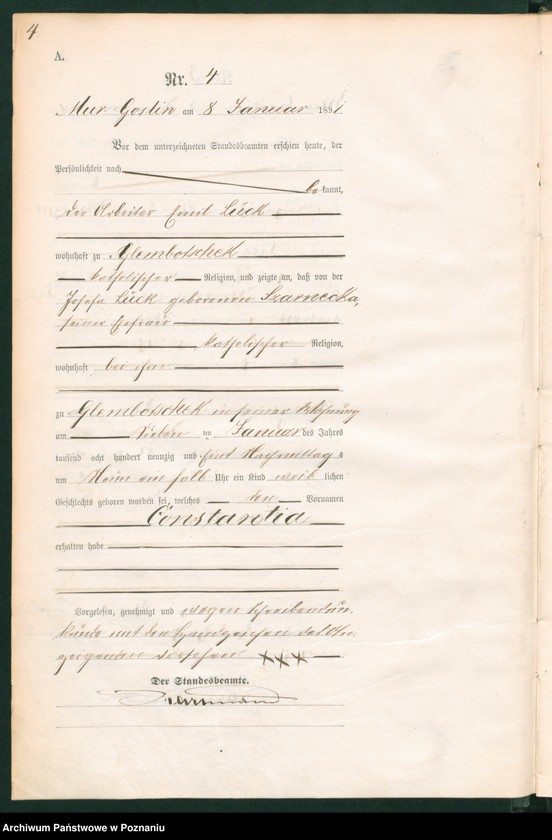 4
A.
Nr. 4
Mur-Goslin am 8 Januar 1891
Vor dem unterzeichneten Standesbeamten erschien heute, der
Persönlichkeit nach
bekannt,
der Arbeiter Emil Lück
wohnhaft zu Glembotschek
katholischer Religion, und zeigte an, daß von der
Josefa Lück geborenen Szarnecka,
seiner Ehefrau
katholischer Religion,
wohnhaft bei ihm
zu Glembotschek in seiner Wohnung
am sieben ten Januar des Jahres
tausend acht hundert neunzig und eins Nachmittags
um Uhr ein Kind weiblichen
Geschlechts geboren worden sei, welches den Vornamen
Constantia
erhalten habe
Vorgelesen, genehmigt und wegen Schreibensun-
kunde mit den Handzeichen des An-
zeigenden versehen. XXX
Der Standesbeamte.
Archiwum Państwowe w Poznaniu